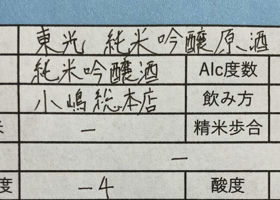 東光 純米吟醸原酒
純米吟醸酒 Alc度数
小嶋総本店 飲み方
米 － 精米歩合
－
度 －4 酸度